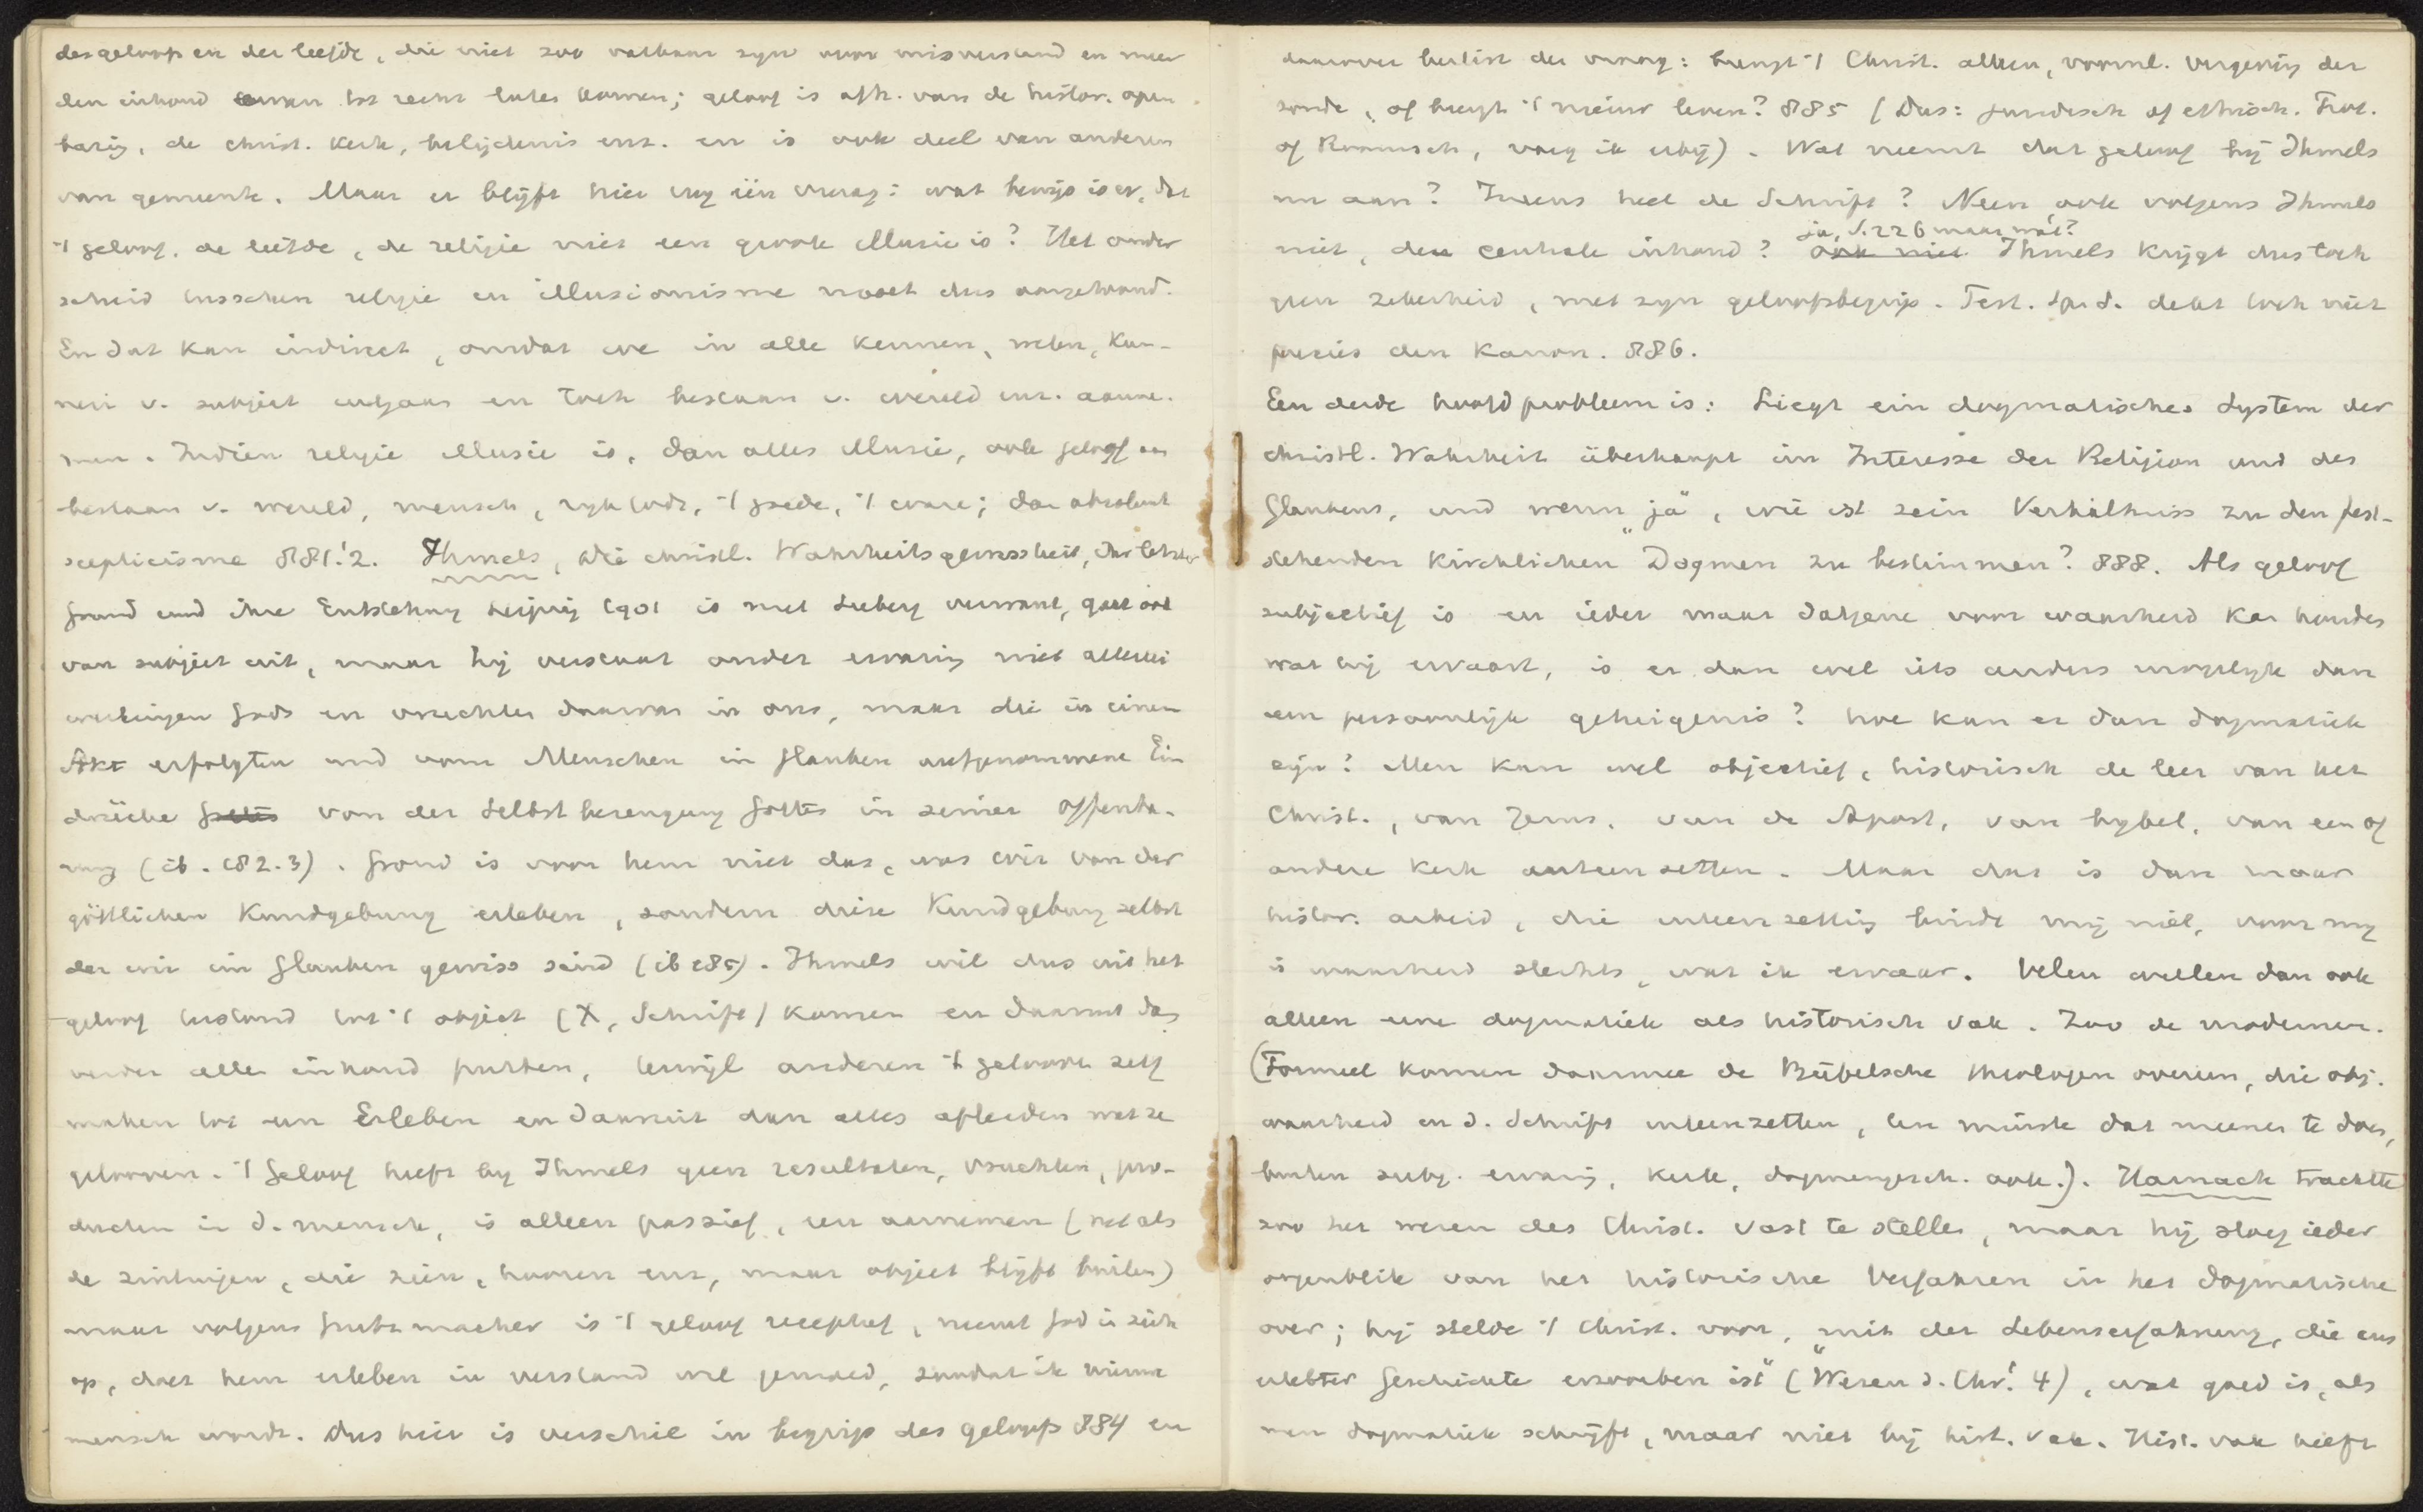 des geloofs en der liefde, die niet zoo vatbaar zyn voor misverstand en meer
den inhoud tot recht laten komen; geloof is afh. van de histor. open
barig, de christ. kerk, belijdenis enz. en is ook deel van anderen
van gemeente. Maar er blijft hier nog één vraag: wat bewijs is er, dat
't geloof, de liefde, de religie niet een groote illusie is? Het onder
scheid tusschen religie en illusionisme moet dus aangetoond.
En dat kan indirect, omdat we in alle kennen, weten, kun-
nen v. subject uitgaan en toch bestaan v. wereld enz. aanne-
men. Indien religie illusie is, dan alles illusie, ook geloof aan
bestaan v. wereld, mensch, 't goede, 't ware; dan absoluut
scepticisme 881.'2. Ihmels, die christl. Wahrheitsgewissheit, ihr letzter
Grund und ihre Entstehung Leipzig 1901 is met Seeberg verwant, gaat ook
van subject uit, maar hij verstaat onder ervaring niet allerlei
werkingen Gods en vruchten daarvan in ons, maar die in einem
Akt erfolgten und vom Menschen im Glauben aufgenommene Ein
drücke von der Selbstbezeugung Gottes in seiner Offenba-
rung (ib. 182.3). Grond is voor hem niet das, was wir von der
göttlichen Kundgebung erleben, sondern diese Kundgebung selbst
der wir im Glauben gewiss sind (ib 285). Ihmels wil dus uit het
geloof tot 't object (X, Schrift) komen en daaruit dan
verder alle inhoud putten, terwijl anderen 't geloof zelf
maken tot een Erleben en daaruit dan alles afleiden wat ze
gelooven. 't Geloof heeft by Ihmels geen resultaten, vruchten, pro-
ducten in d. mensch, is alleen passief, een aannemen (net als
de zintuigen, die zien, hooren enz, maar object blyft buiten)
maar volgens Grützmacher is 't geloof receptief, neemt God in zich
op, doet hem erleben in verstand wil gemoed, zoodat ik nieuw
mensch wordt. Dus hier is verschil in begrip des geloofs 884 en
daarover beslist de vraag: brengt 't Christ. alleen, voornl. vergeving der
zonde, of brengt 't nieuw leven? 885 (Dus: juridisch of ethisch. Prot.
of Roomsch, voeg ik erbij). Wat neemt dat geloof bij Ihmels
nu aan? Ineens heel de Schrift? Neen, ook volgens Ihmels
ja, S. 226 maar wat?
niet, den centrale inhoud? ook niet. Ihmels krijgt dus toch
geen zekerheid, met zyn geloofsbegrip. Test. Sp. S. dekt toch niet
precies den Kanon. 886.
Een derde hoofdprobleem is: Liegt ein dogmatisches System der
christl. Wahrheit überhaupt im Interesse der Religion und des
Glaubens, und wenn "ja", wie ist sein Verhältniss zu den fest-
stehenden kirchlichen Dogmen zu bestimmen? 888. Als geloof
subjectief is en ieder maar datgene voor waarheid kan houden
wat hij ervaart, is er dan wel iets anders mogelyk dan
een persoonlijk getuigenis? hoe kan er dan dogmatiek
zijn? Men kan wel objectief, historisch de leer van het
Christ., van Jezus, van de Apost, van bybel, van een of
andere kerk uiteenzetten. Maar dat is dan maar
histor. arbeid, die uiteenzetting bindt mij niet, voor my
is waarheid slechts, wat ik ervaar. Velen willen dan ook
alleen eene dogmatiek als historisch vak. Zoo de modernen.
(Formeel komen daarmee de Bijbelsche theologen overeen, die obj.
waarheid en d. Schrift uiteenzetten, ten minste dat meenen te doen,
buiten subj. ervaring, kerk, dogmengesch. ook.). Harnack trachtte
zoo het wezen des Christ. vast te stellen, maar hij sloeg ieder
oogenblik van het historische Verfahren in het dogmatische
over; hij stelde 't Christ. voor, "mit der Lebenserfahrung, die aus
erlebter Geschichte erworben ist" ("Wesen d. Chr.' 4), wat goed is, als
men dogmatiek schrijft, maar niet bij hist. vak. Hist. vak heeft